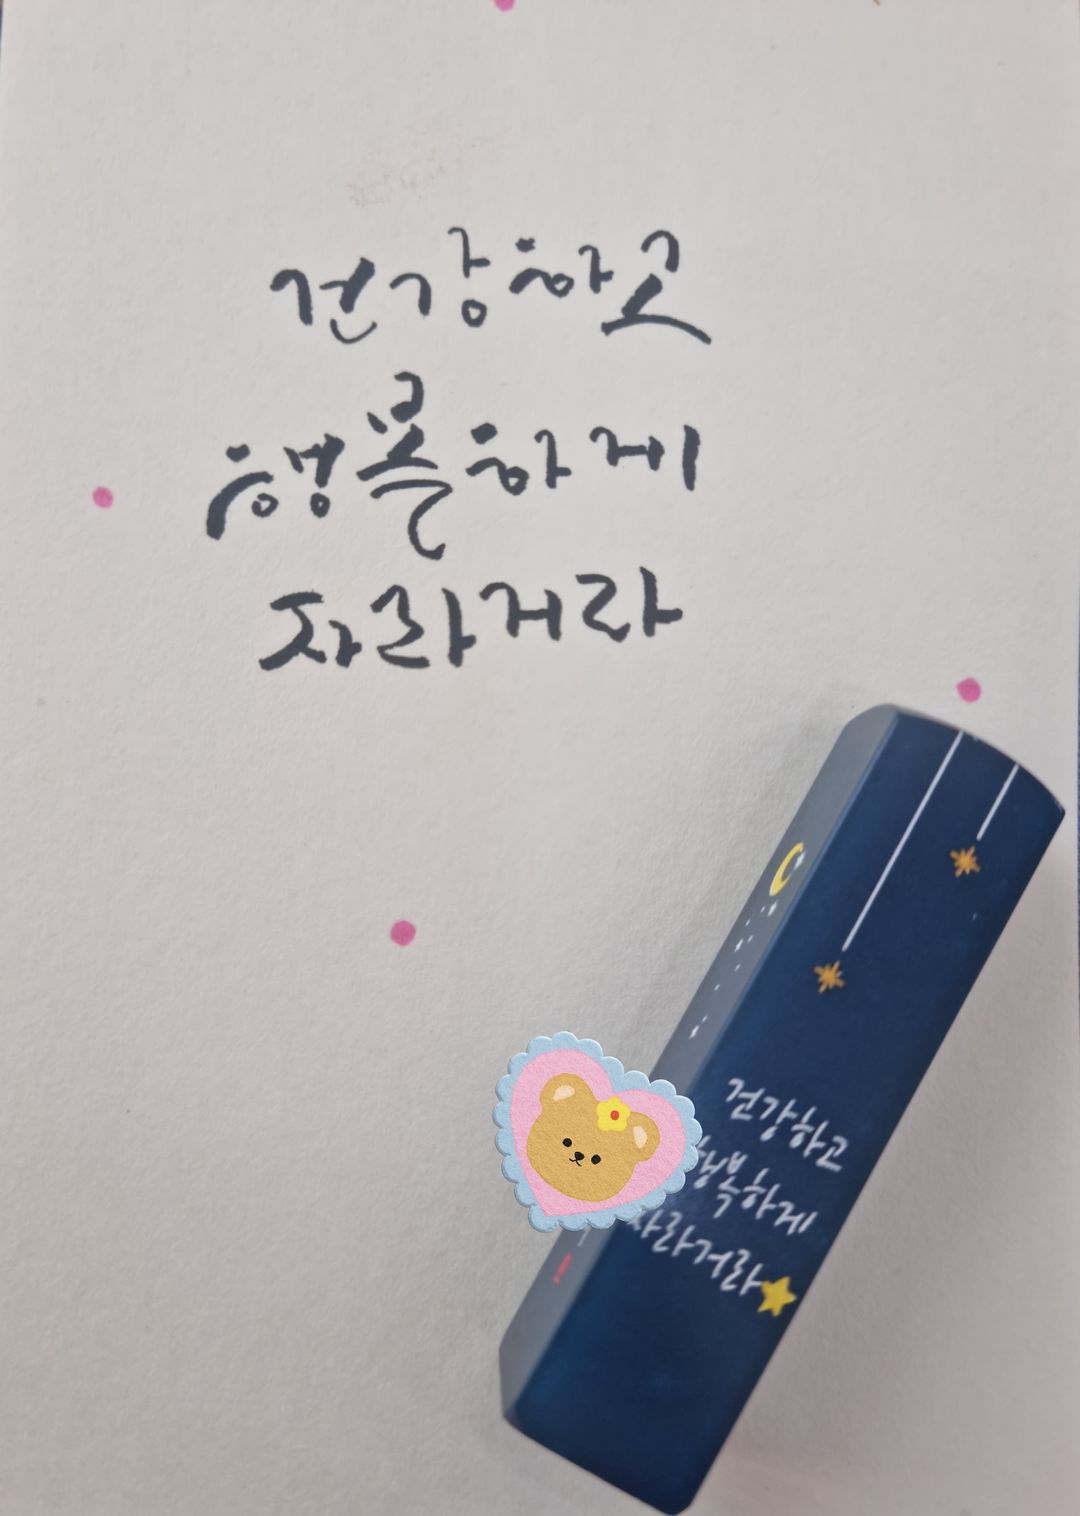 건강하고
행복하게
자라거라
건강하고
행복하게
자라거라